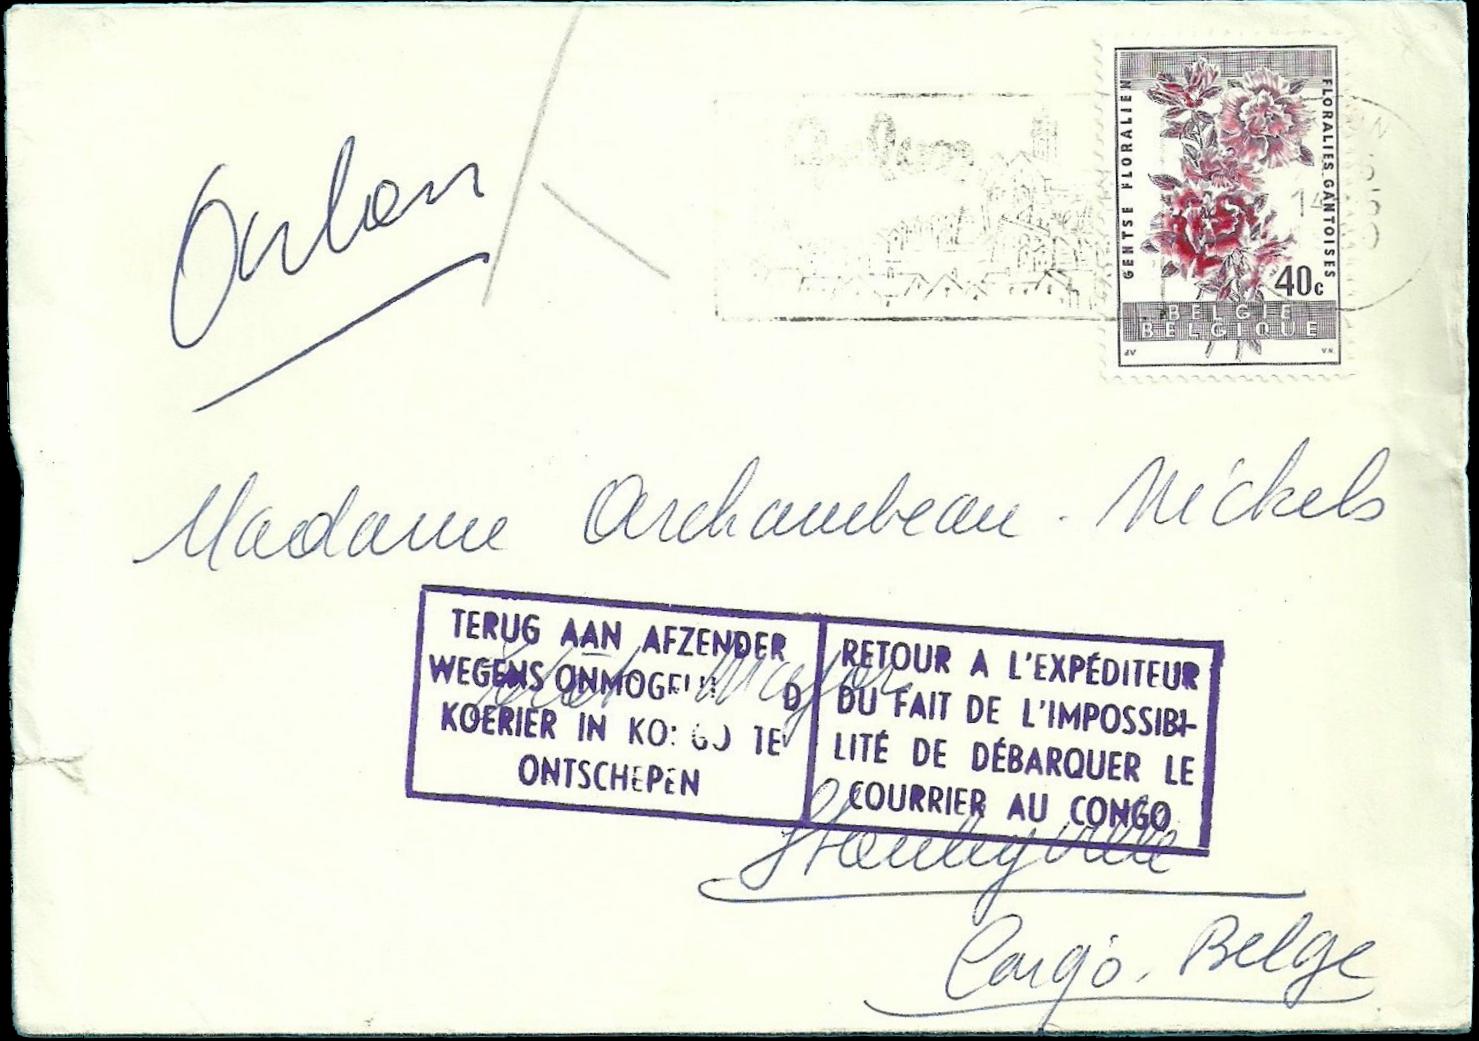 Arlon
GENTSE FLORALIEN
FLORALIES GANTOISES
40c
BELGIË
BELGIQUE
JV
VN
14
Madame Archambeau - Nickels
TERUG AAN AFZENDER
WEGENS ONMOGEL D
KOERIER IN KONGO TE
ONTSCHEPEN
RETOUR A L'EXPÉDITEUR
DU FAIT DE L'IMPOSSIBI-
LITÉ DE DÉBARQUER LE
COURRIER AU CONGO
Stanleyville
Congo. Belge